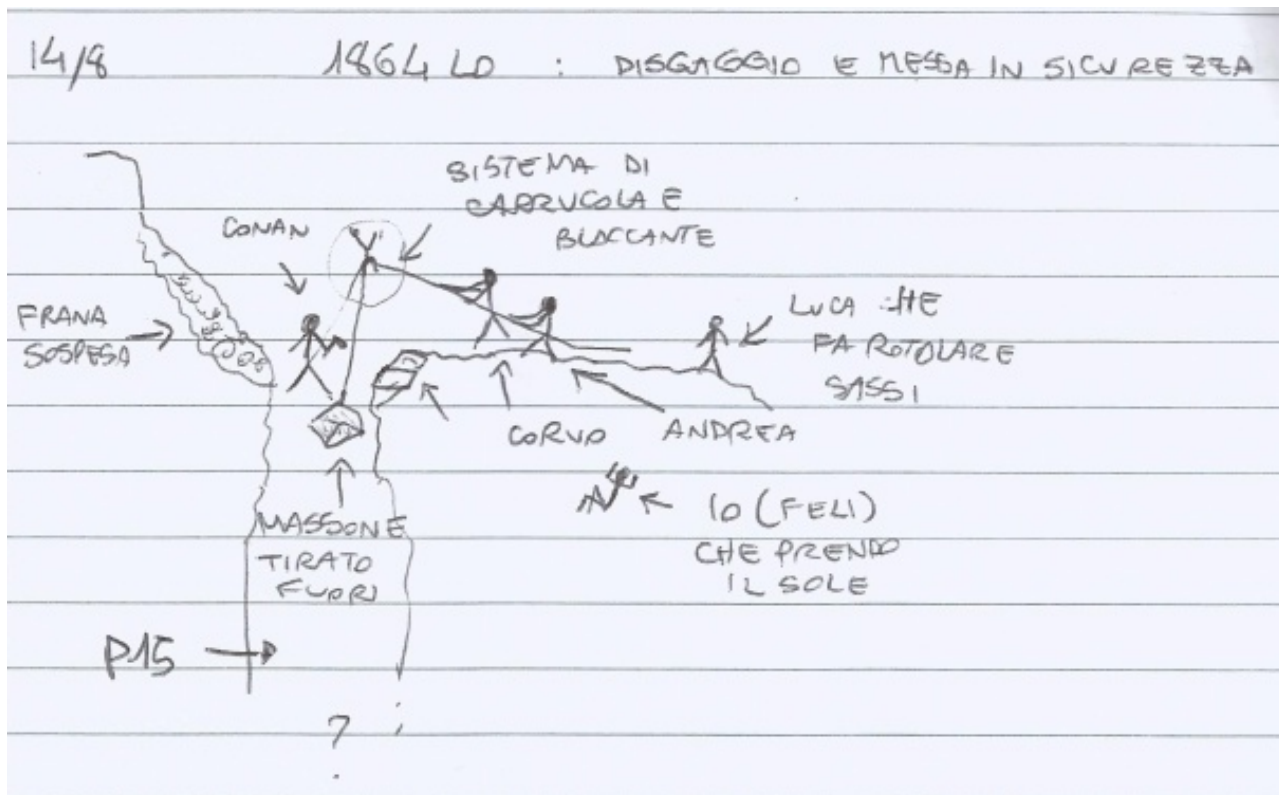 14/8 1864 LO : DISGAGGIO E MESSA IN SICUREZZA
SISTEMA DI
CARRUCOLA E
BLOCCANTE
CONAN
FRANA
SOSPESA
LUCA CHE
FA ROTOLARE
SASSI
CORVO
ANDREA
MASSONE
TIRATO
FUORI
IO (FELI)
CHE PRENDO
IL SOLE
P15
?